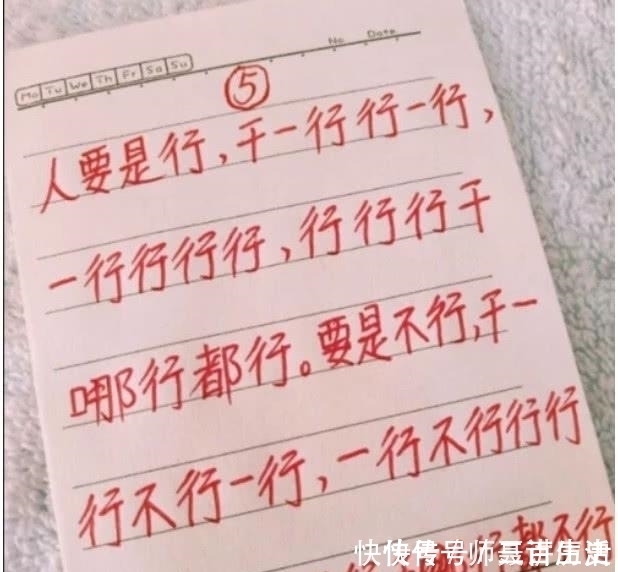 No Date
Mo Tu We Th Fr Sa Su
⑤
人要是行,干一行行一行,
一行行行行,行行行干
哪行都行。要是不行,干一
行不行一行,一行不行行行
都不行